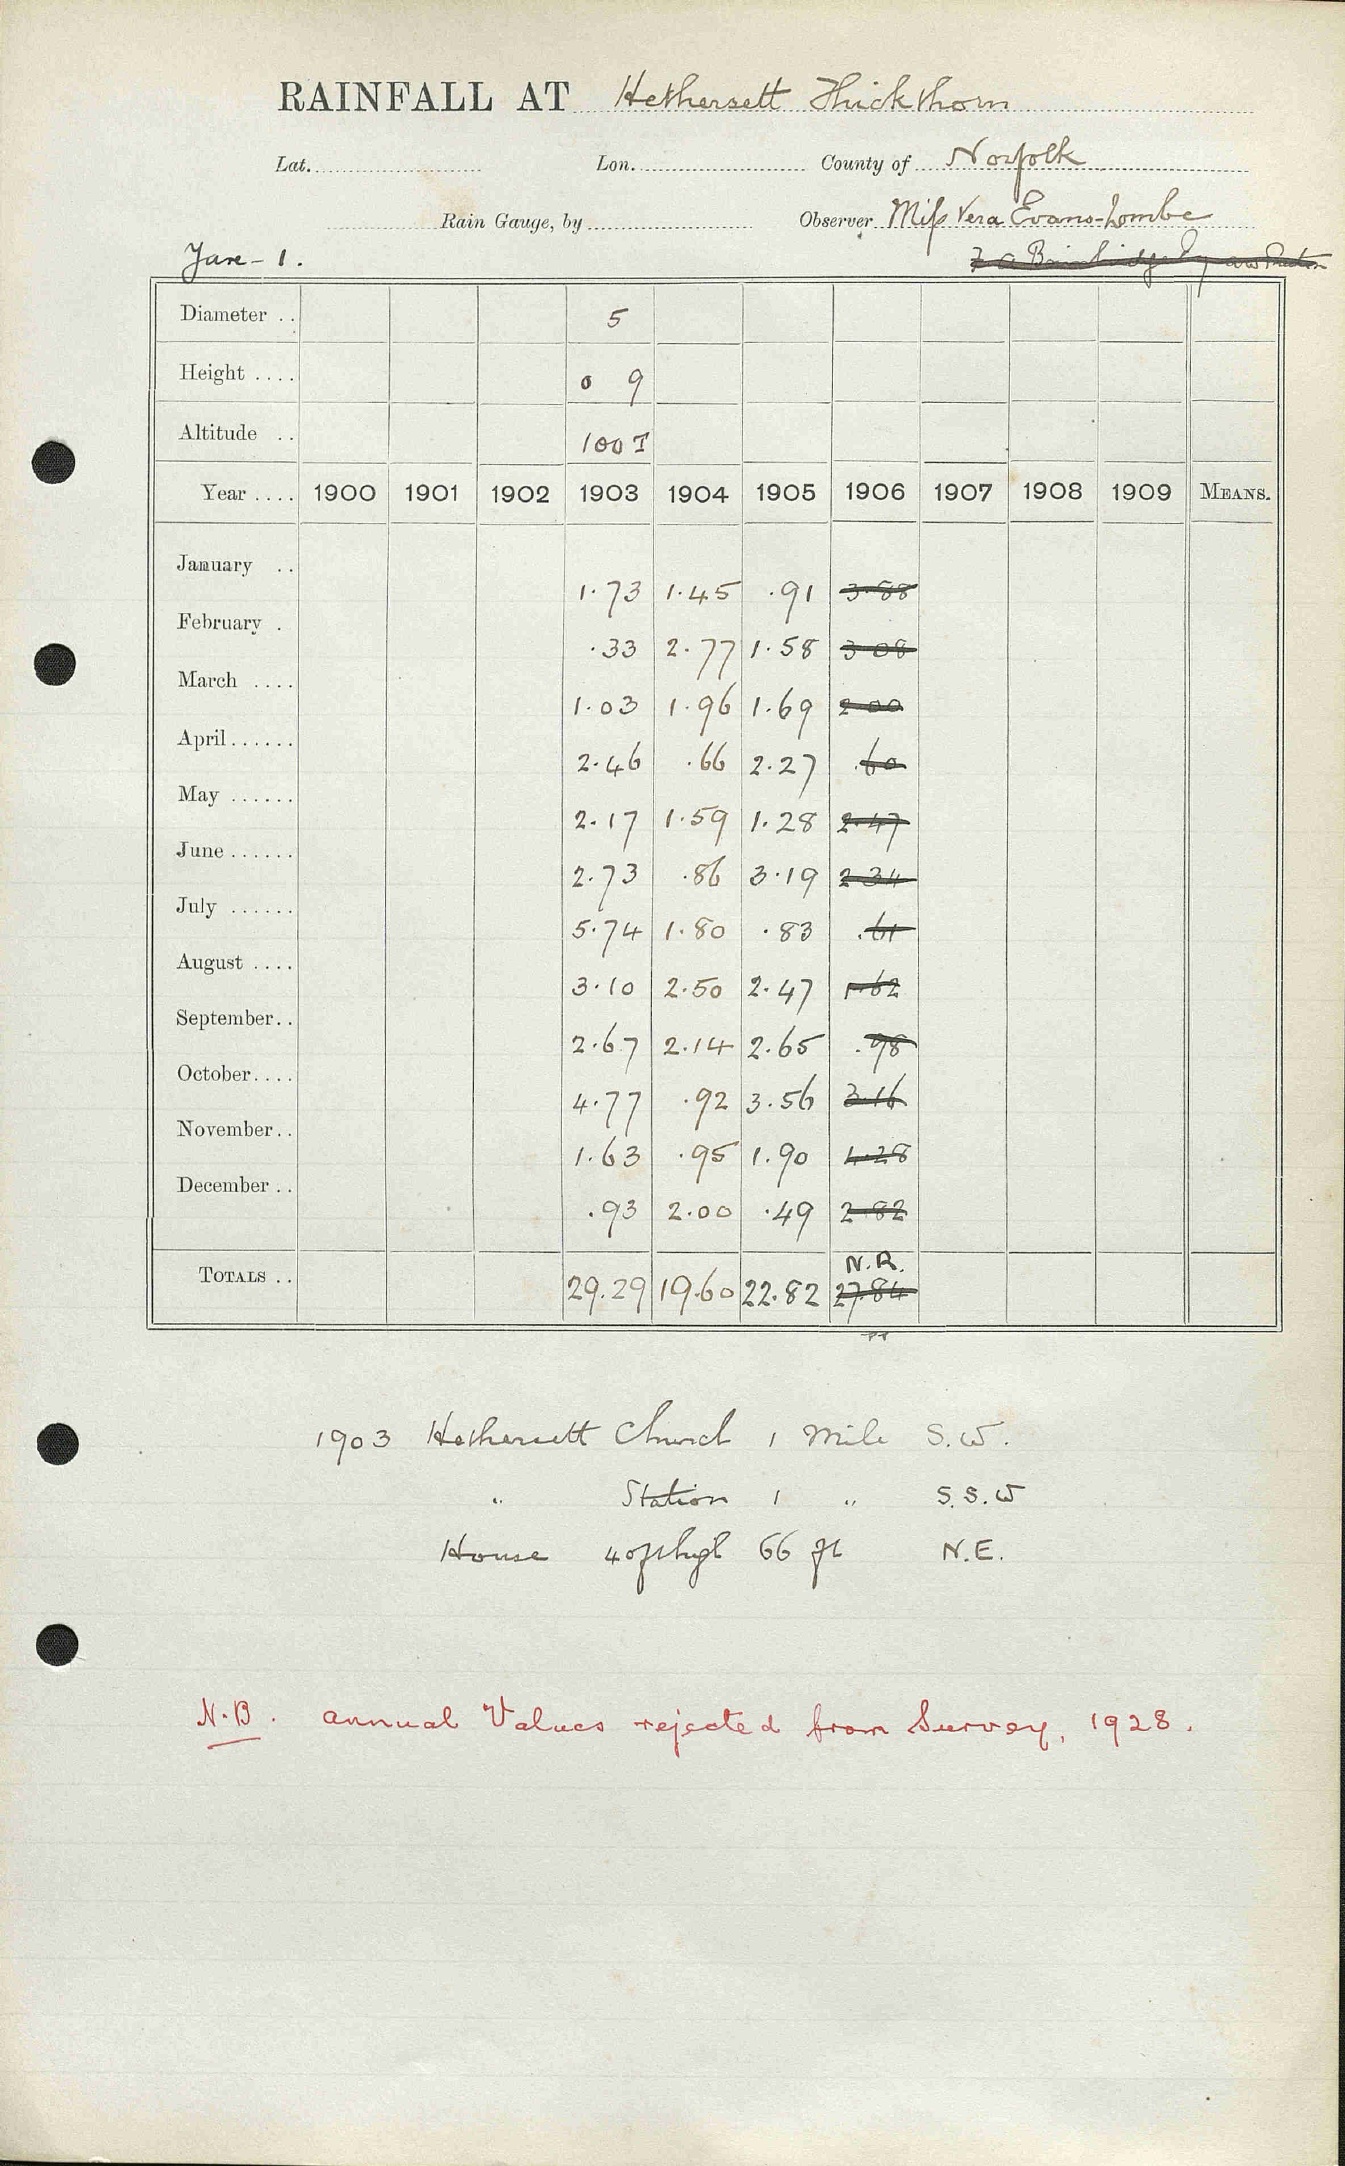 RAINFALL AT Hethersett Thickthorn
Lat. Lon. County of Norfolk
Rain Gauge, by Observer Miss Vera Evans-Lombe
Yare - 1.
Diameter .. 5
Height .... 0 9
Altitude .. 100 T
Year .... 1900 1901 1902 1903 1904 1905 1906 1907 1908 1909 MEANS.
January .. 1.73 1.45 .91 3.88
February . .33 2.77 1.58 3.08
March .... 1.03 1.96 1.69 2.00
April...... 2.46 .66 2.27 .60
May ...... 2.17 1.59 1.28 2.47
June ...... 2.73 .86 3.19 2.34
July ...... 5.74 1.80 .83 .61
August .... 3.10 2.50 2.47 1.62
September.. 2.67 2.14 2.65 .98
October.... 4.77 .92 3.56 3.16
November.. 1.63 .95 1.90 4.28
December .. .93 2.00 .49 2.82
N.R.
TOTALS .. 29.29 19.60 22.82 27.84
1903 Hethersett Church 1 Mile S.W.
" Station 1 " S.S.W
House 40ft high 66 ft N.E.
N.B. annual Values rejected from Survey, 1928.